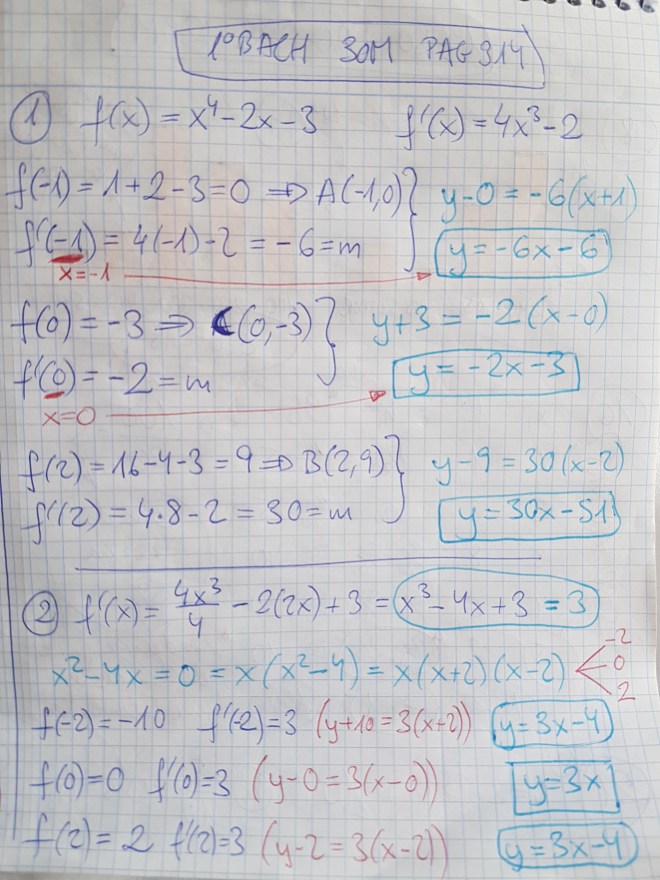 1º BACH 30M PAG 314
① f(x) = x⁴ - 2x - 3 f'(x) = 4x³ - 2
f(-1) = 1 + 2 - 3 = 0 ⇒ A(-1,0) } y - 0 = -6(x+1)
f'(-1) = 4(-1) - 2 = -6 = m y = -6x - 6
x = -1
f(0) = -3 ⇒ C(0,-3) } y + 3 = -2(x - 0)
f'(0) = -2 = m y = -2x - 3
x = 0
f(2) = 16 - 4 - 3 = 9 ⇒ B(2,9) } y - 9 = 30(x - 2)
f'(2) = 4·8 - 2 = 30 = m y = 30x - 51
② f'(x) = 4x³/4 - 2(2x) + 3 = x³ - 4x + 3 = 3
x² - 4x = 0 = x(x² - 4) = x(x+2)(x-2) < -2 0 2
f(-2) = -10 f'(-2) = 3 (y + 10 = 3(x+2)) y = 3x - 4
f(0) = 0 f'(0) = 3 (y - 0 = 3(x - 0)) y = 3x
f(2) = 2 f'(2) = 3 (y - 2 = 3(x - 2)) y = 3x - 4